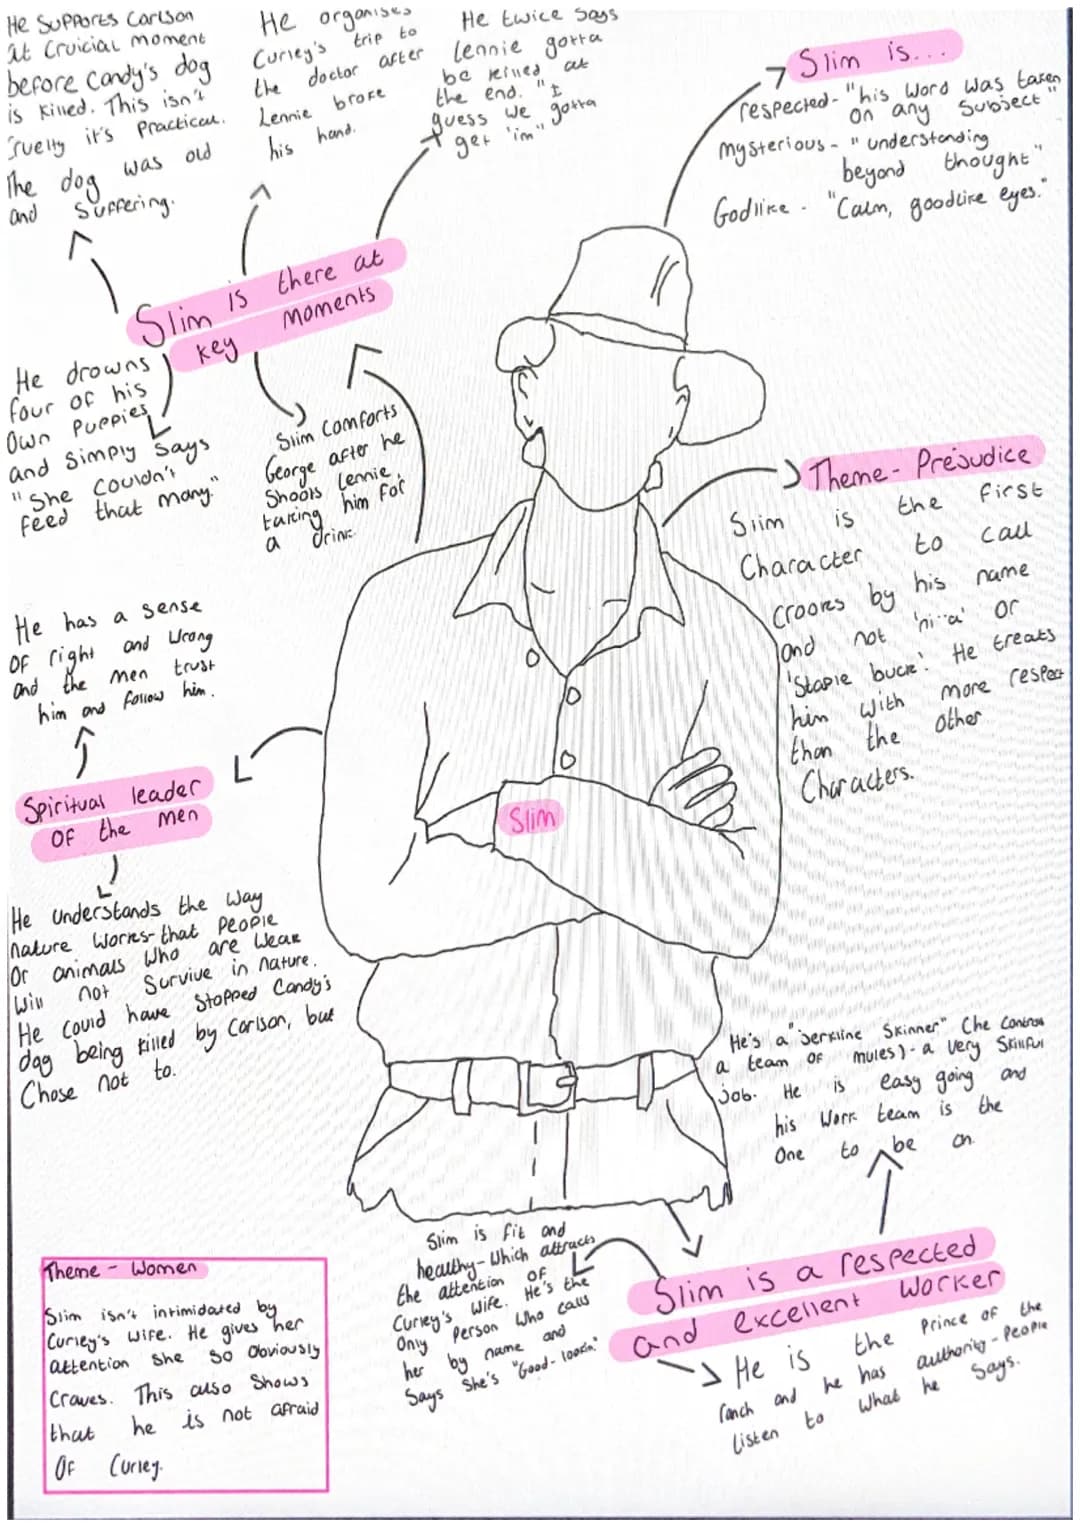 He supports Carlson
at Cruicial moment
before Candy's dog
is killed. This isn't
cruelty it's Practical.
The dog was old
and suffering.
He organises
Curley's trip to
the doctor after
Lennie broke
his hand.
He twice says
Lennie gotta
be killed at
the end. "I
guess we gotta
get 'im"
Slim is...
respected - "his word was taken
on any subject"
mysterious - "understanding
beyond thought"
Godlike - "Calm, goodlike eyes."
Slim is there at
key moments
He drowns
four of his
own Puppies
and simply says
"She couldn't
feed that many."
Slim comforts
George after he
shoots Lennie,
taking him for
a drink.
Theme - Prejudice
Slim is the first
Character to call
crooks by his name
and not 'ni--a' or
'Stable buck'. He treats
him with more respect
than the other
Characters.
He has a sense
of right and wrong
and the men trust
him and follow him.
Spiritual leader
of the men
He understands the way
nature works - that people
or animals who are weak
will not survive in nature.
He could have stopped Candy's
dog being killed by Carlson, but
Chose not to.
Slim
He's a "jerkline skinner" (he controls
a team of mules) - a very skillful
job. He is easy going and
his work team is the
one to be on.
Slim is a respected
and excellent worker
He is the Prince of the
ranch and he has authority - people
listen to what he says.
Slim is fit and
healthy - which attracts
the attention of
Curley's wife. He's the
only person who calls
her by name and
says she's "Good-lookin."
Theme - Women
Slim isn't intimidated by
Curley's wife. He gives her
attention she so obviously
craves. This also shows
that he is not afraid
of Curley.